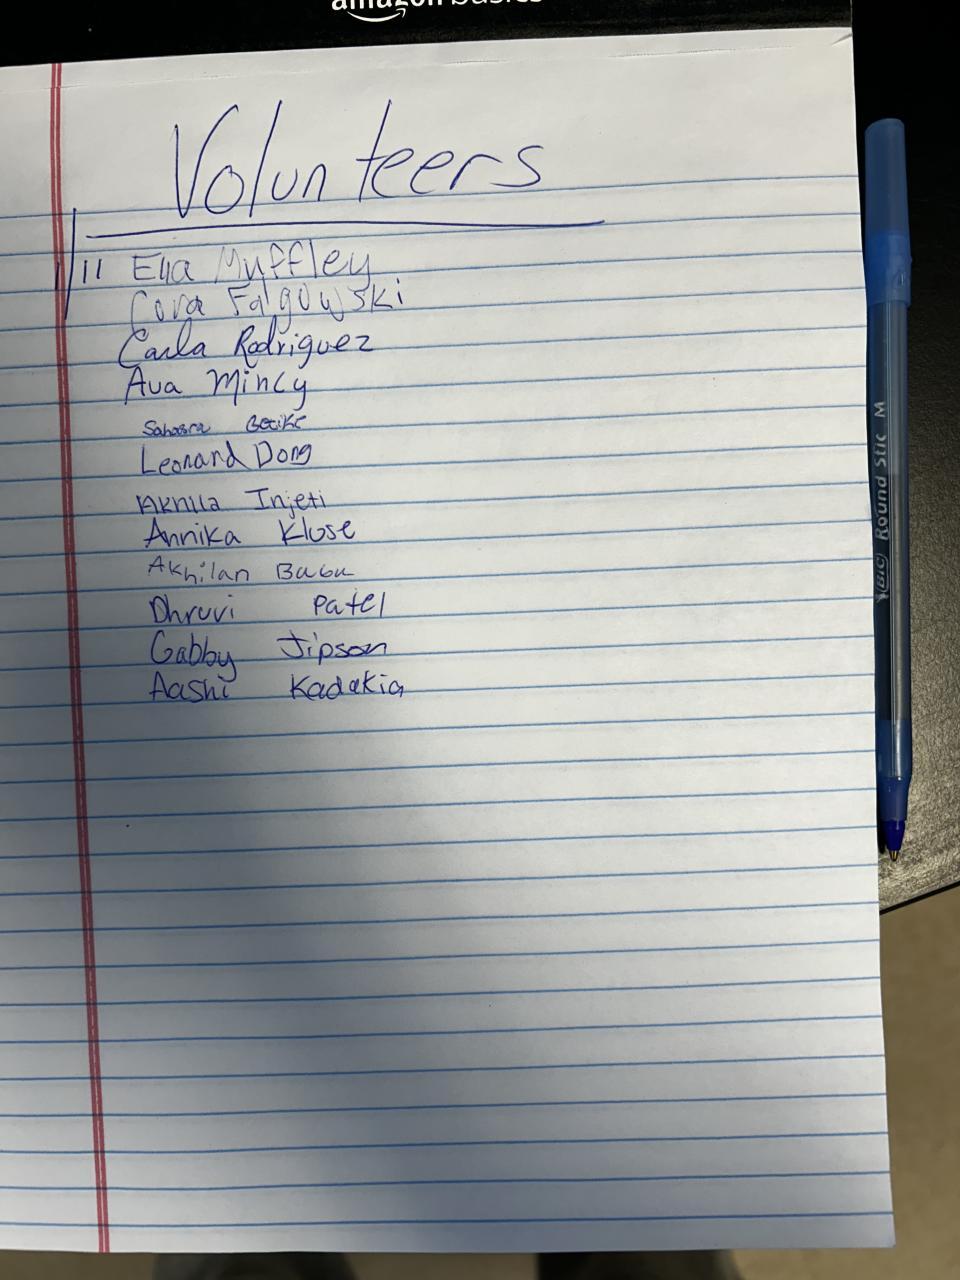 amazon basics
Volunteers
Ella Muffley
Cora Falgowski
Carla Rodriguez
Ava Mincy
Sahasra
Leonard Dong
Akhila Injeti
Annika Kluse
Akhilan Babu
Dhruvi Patel
Gabby Jipson
Aashi Kadakia
BIC Round Stic M